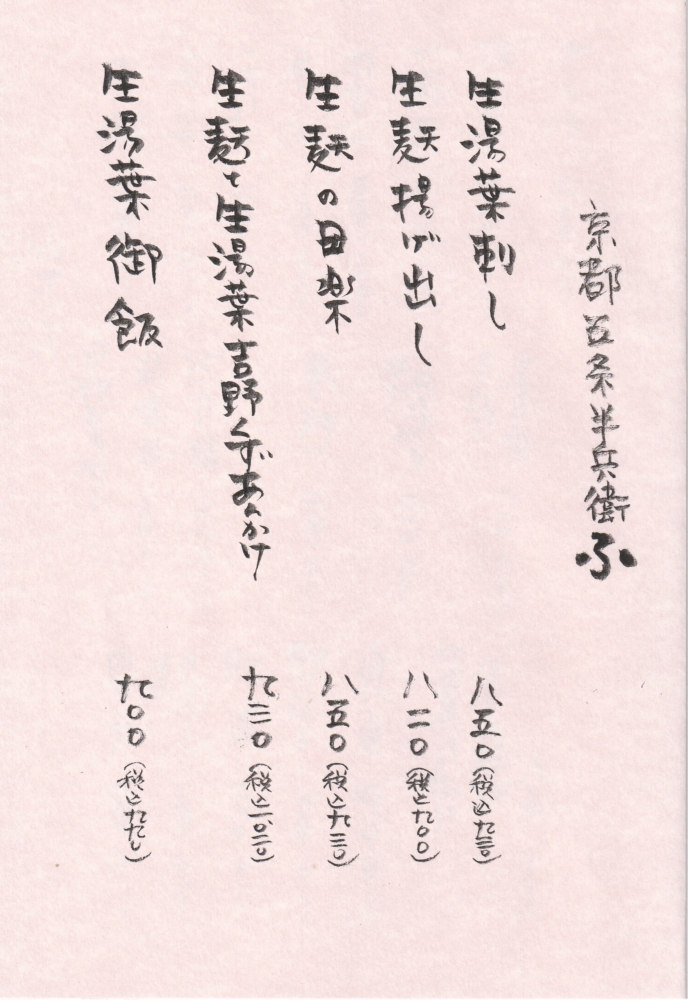 京都五条半兵衛ふ
生湯葉刺し 八五〇（税込九三〇）
生麩揚げ出し 八二〇（税込九〇〇）
生麩の田楽 八五〇（税込九三〇）
生麩と生湯葉吉野くずあんかけ 九三〇（税込一、〇二〇）
生湯葉御飯 九〇〇（税込九九〇）